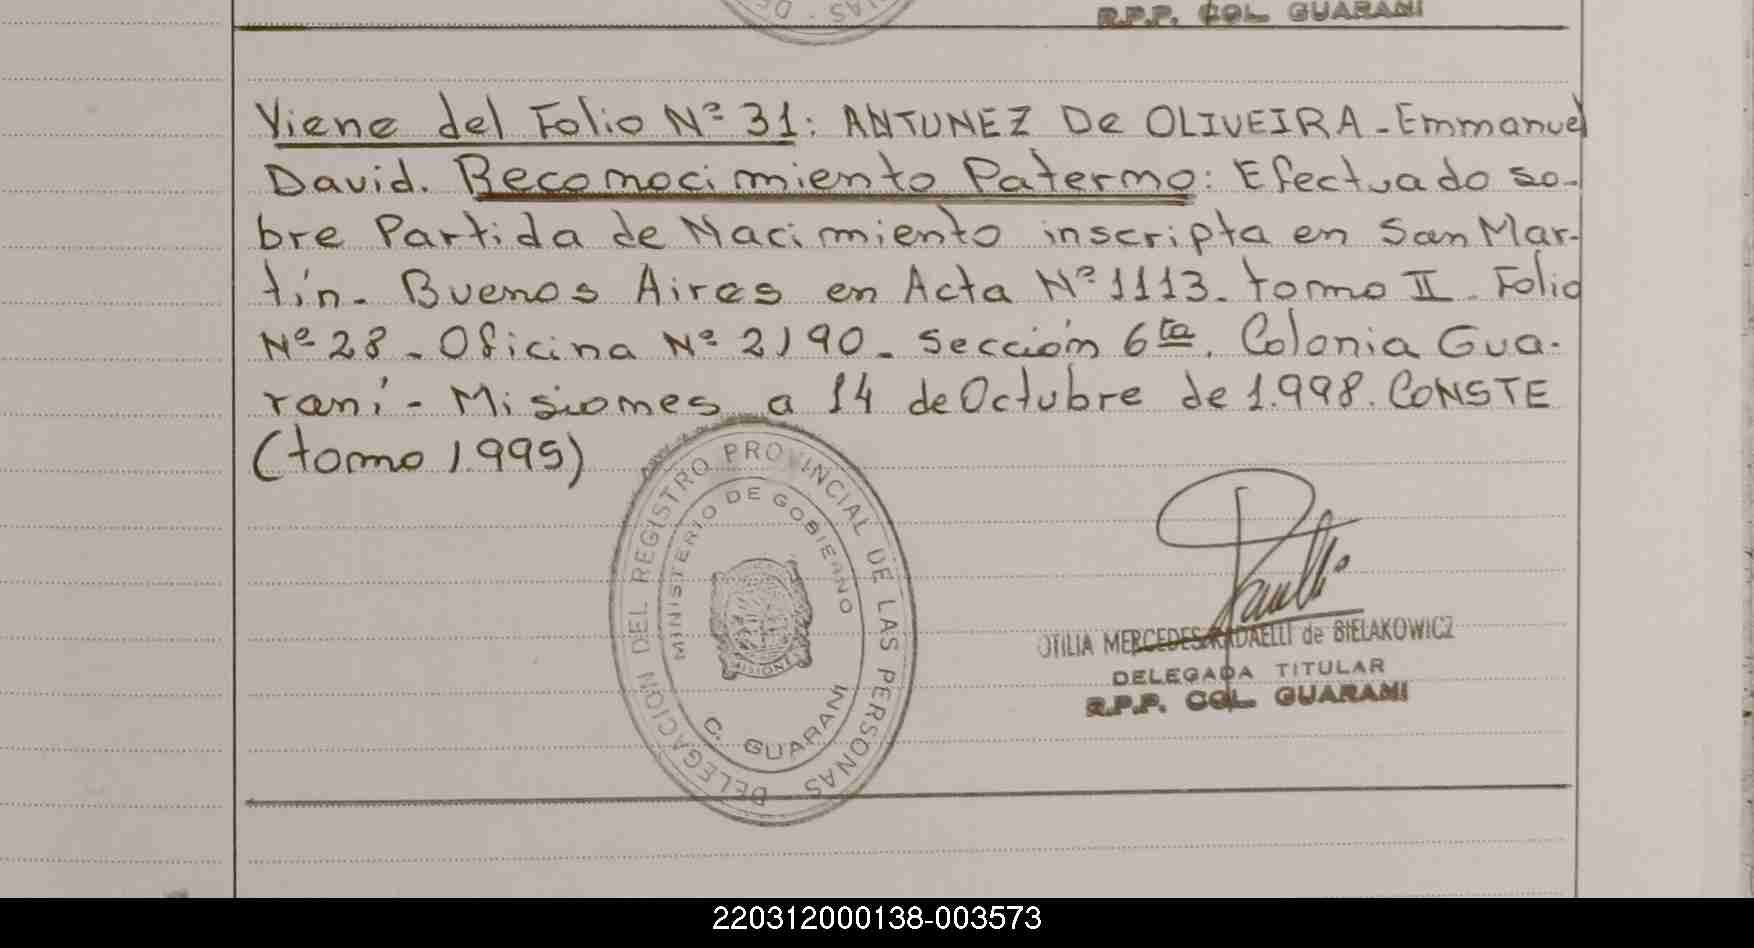 R.P.P. COL. GUARANI
Viene del Folio Nº 31: ANTUNEZ De OLIVEIRA - Emmanuel
David. Reconocimiento Paterno: Efectuado so-
bre Partida de Nacimiento inscripta en San Mar-
tín - Buenos Aires en Acta Nº 1113. tomo II. Folio
Nº 28 - Oficina Nº 2190 - Sección 6ta. Colonia Gua-
raní - Misiones a 14 de Octubre de 1.998. CONSTE
(tomo 1.995)
DELEGACION DEL REGISTRO PROVINCIAL DE LAS PERSONAS
MINISTERIO DE GOBIERNO
MISIONES
C. GUARANI
OTILIA MERCEDES RADAELLI de BIELAKOWICZ
DELEGADA TITULAR
R.P.P. COL. GUARANI
220312000138-003573